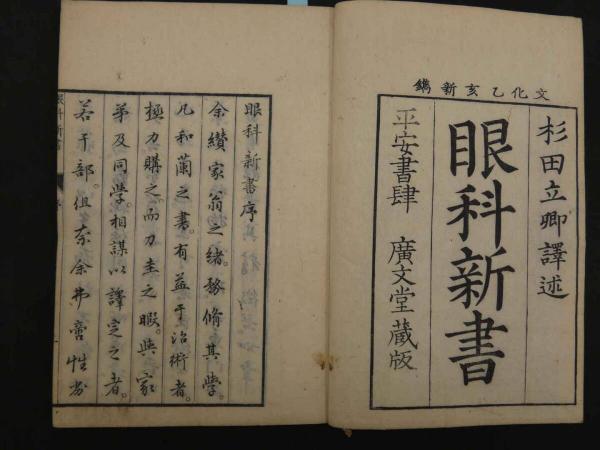 文化乙亥新鐫
杉田立卿譯述
眼科新書
平安書肆 廣文堂藏版
眼科新書序
余纉家翁之緒。務脩其學。
凡和蘭之書。有益于治術者。
極力購之。而刀圭之暇。與家
弟及同學。相謀以譯定之者。
若干部。但奈余弗啻性劣
眼科新書